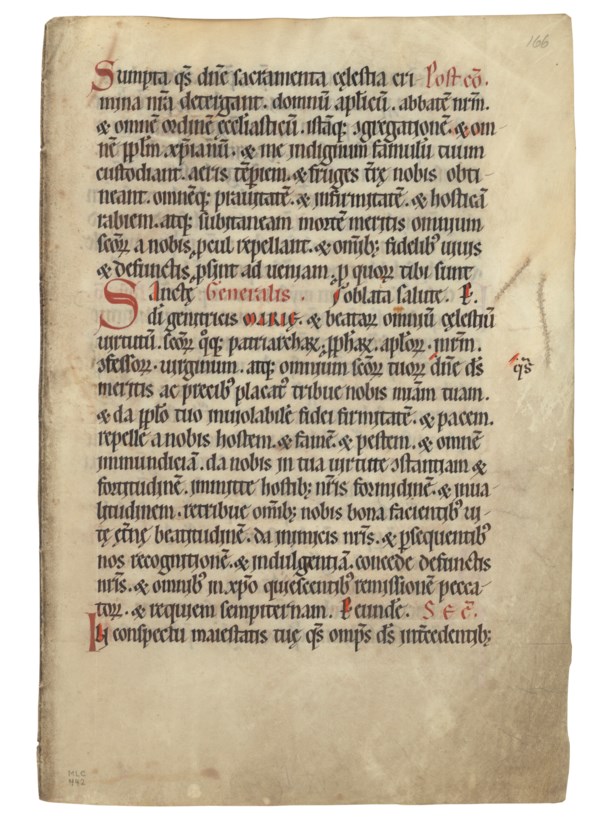 166
Sumpta q̄s dn̄e sacramenta cęlestia cri Post cō.
mina nr̄a detergant. domnū apłicū. abbatē nr̄m.
& omnē ordinē ęccłiasticū. istāq; ɔgregationē. & om
nē ppłm xp̄ianū. & me indignum famulū tuum
custodiant. aeris tēpiem. & fruges tr̄ę nobis obti-
neant. omnēq; prauitatē. & infirmitatē. & hosticā
rabiem. atq; subitaneam mortē meritis omnium
sc̄oꝝ a nobis ꝓcul repellant. & omīb; fidelib; uiuis
& defunctis ꝓsint ad ueniam. ꝑ quoꝝ tibi sunt
Sanctę Generalis. oblata salute. P.
di genitricis MARIE. & beatoꝝ omniū cęlestiū
uirtutū. sc̄oꝝ qq; patriarchaꝝ. ꝓphaꝝ. apłoꝝ. mr̄m.
ɔfessoꝝ. uirginum. atq; omnium sc̄oꝝ tuoꝝ dn̄e ds̄
q̄s
meritis ac precib; placat; tribue nobis mīam tuam.
& da ppło tuo inuiolabilē fidei firmitatē. & pacem.
repelle a nobis hostem. & famē. & pestem. & omnē
inmundiciam. da nobis in tua uirtute ɔstantiam &
fortitudinē. inmitte hostib; nr̄is formidinē. & inua-
litudinem. retribue omīb; nobis bona facientib; ui-
tę ęt̄nę beatitudinē. da inimicis nr̄is. & ꝑsequentib;
nos recognitionē. & indulgentiā. concede defunctis
nr̄is. & omnib; in xp̄o quiescentib; remissionē pecca-
toꝝ. & requiem sempiternam. P eundē. SEC̄.
In conspectu maiestatis tuę q̄s omps̄ ds̄ int̄cedentib;
MLC
442